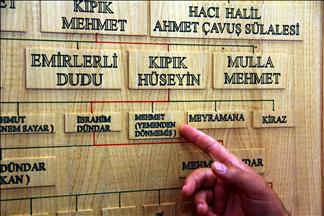 KIPIK
MEHMET
HACI HALİL
AHMET ÇAVUŞ SÜLALESİ
EMİRLERLİ
DUDU
KIPIK
HÜSEYİN
MULLA
MEHMET
HMUT
NEM SAYAR )
İBRAHİM
DÜNDAR
MEHMET
(YEMENDEN
DÖNMEMİŞ )
MEYRAMANA
KİRAZ
DÜNDAR
KAN )
MEHMET
DÜNDAR